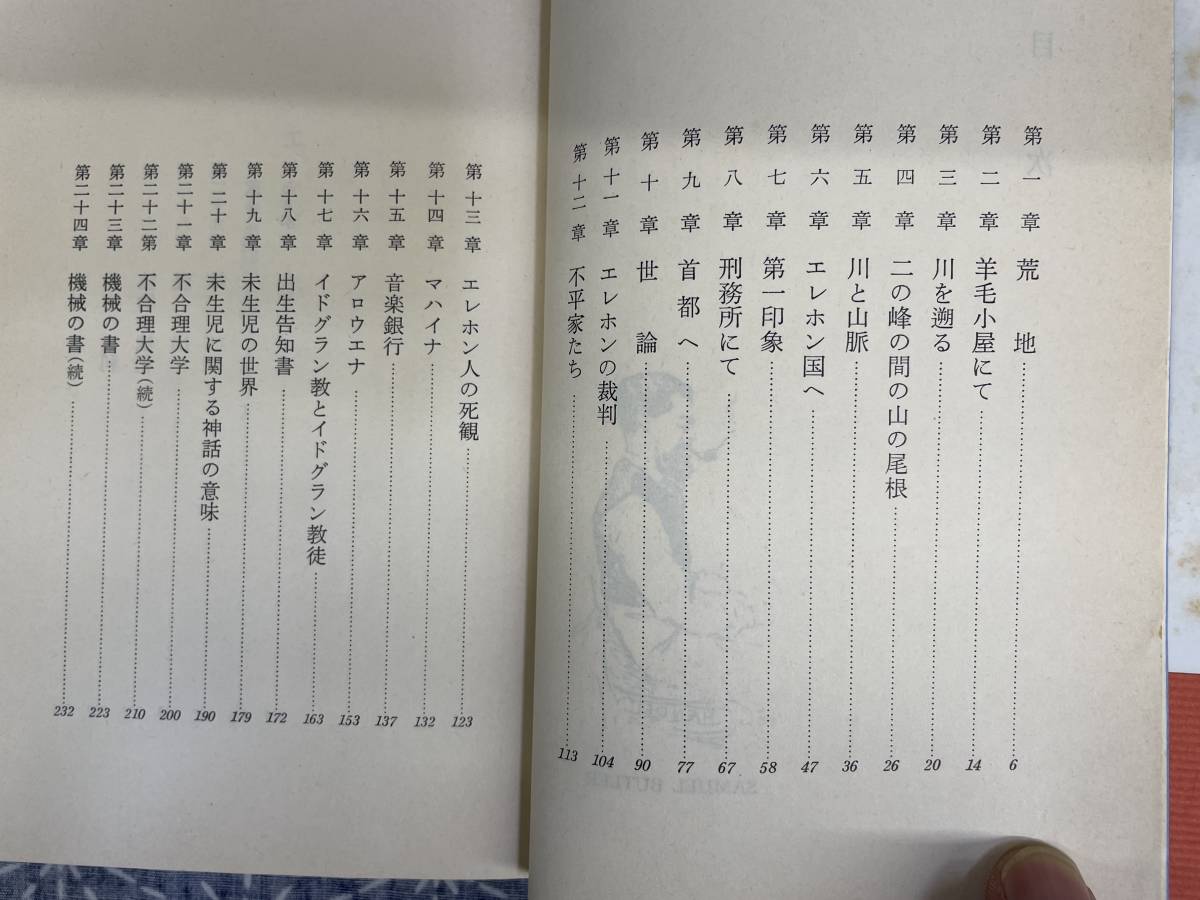 目次
第一章 荒地 6
第二章 羊毛小屋にて 14
第三章 川を遡る 20
第四章 二の峰の間の山の尾根 26
第五章 川と山脈 36
第六章 エレホン国へ 47
第七章 第一印象 58
第八章 刑務所にて 67
第九章 首都へ 77
第十章 世論 90
第十一章 エレホンの裁判 104
第十二章 不平家たち 113
第十三章 エレホン人の死観 123
第十四章 マハイナ 132
第十五章 音楽銀行 137
第十六章 アロウエナ 153
第十七章 イドグラン教とイドグラン教徒 163
第十八章 出生告知書 172
第十九章 未生児の世界 179
第二十章 未生児に関する神話の意味 190
第二十一章 不合理大学 200
第二十二第 不合理大学(続) 210
第二十三章 機械の書 223
第二十四章 機械の書(続) 232
SAMUEL BUTLER